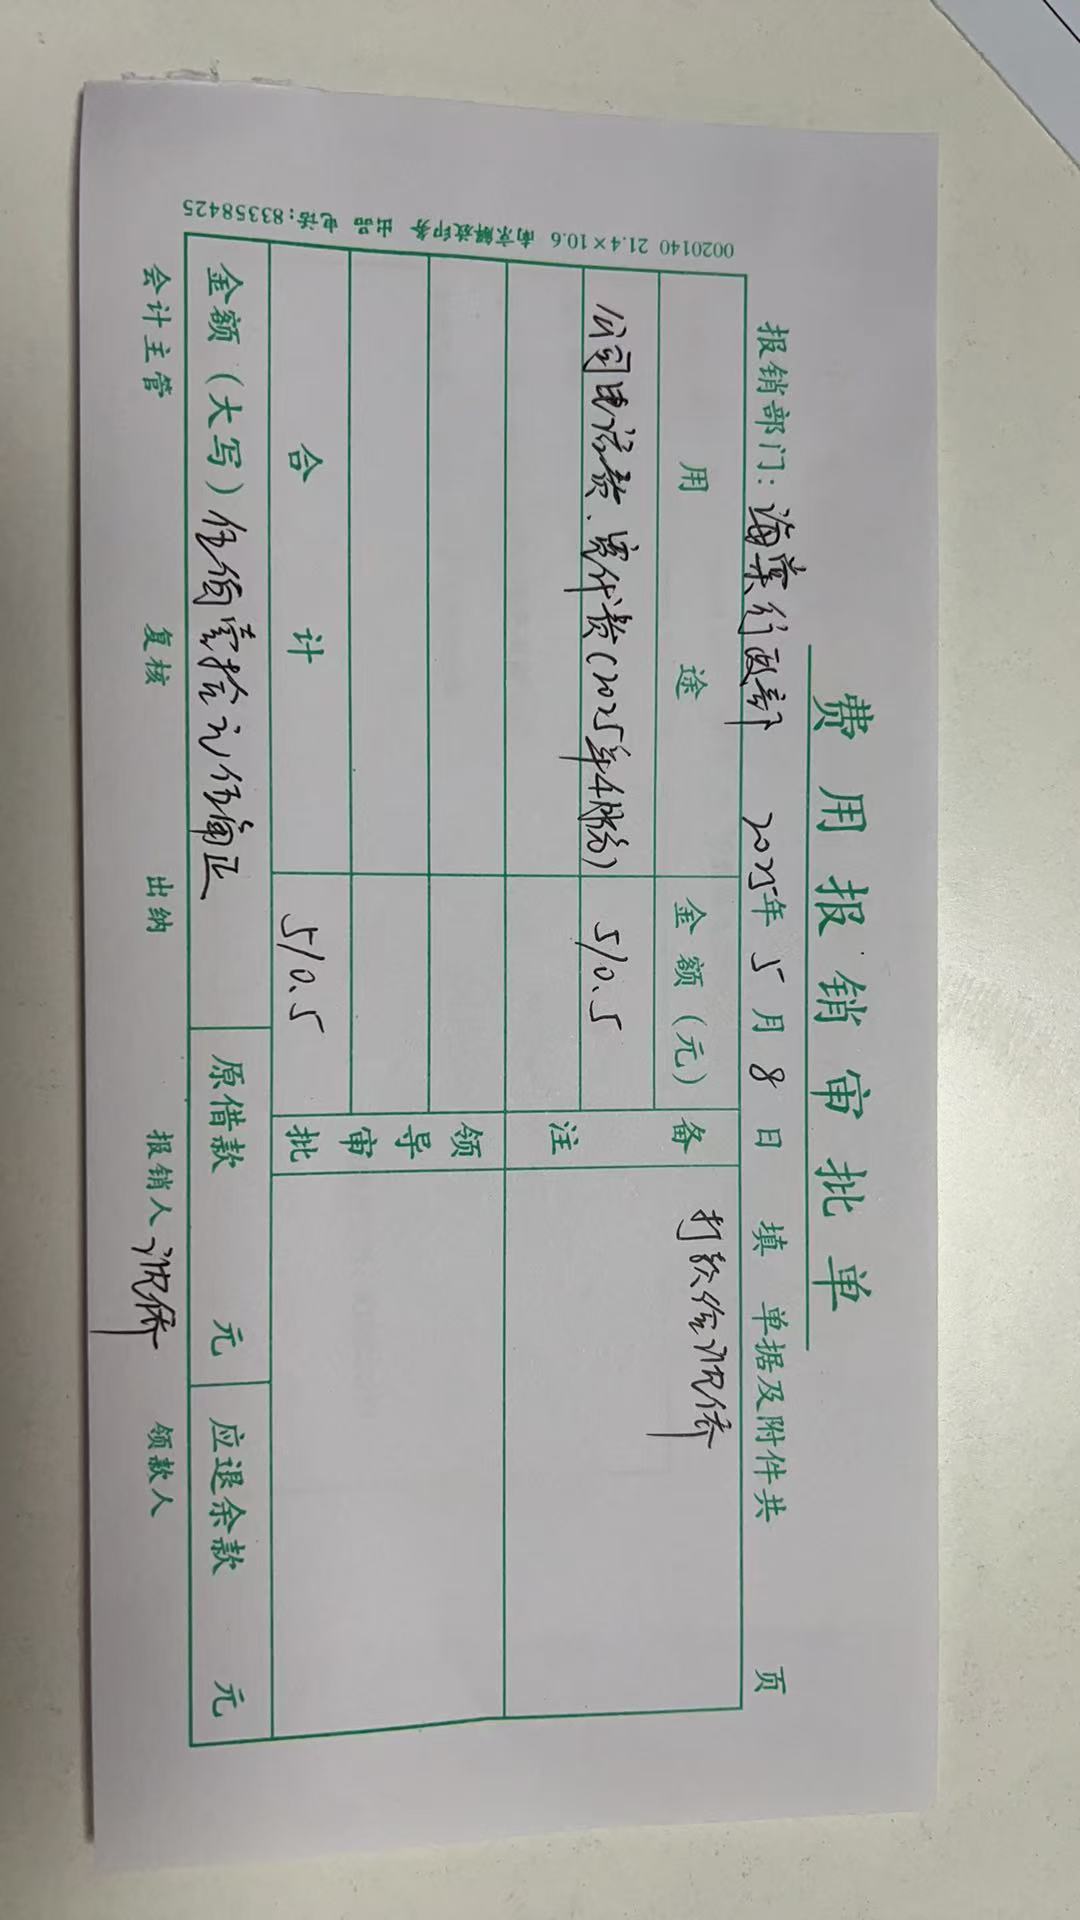 费用报销审批单
报销部门：海棠行政部 2025年 5月 8日 填 单据及附件共 页
用途 金额(元) 备注 打款给
公司电话费、宽代费(2025年4月份) 510.5
领导审批
合计 510.5
金额(大写) 伍佰壹拾元伍角正 原借款 元 应退余款 元
会计主管 复核 出纳 报销人 领款人
0020140 21.4×10.6 南京解放印务 出品 电话:83358425